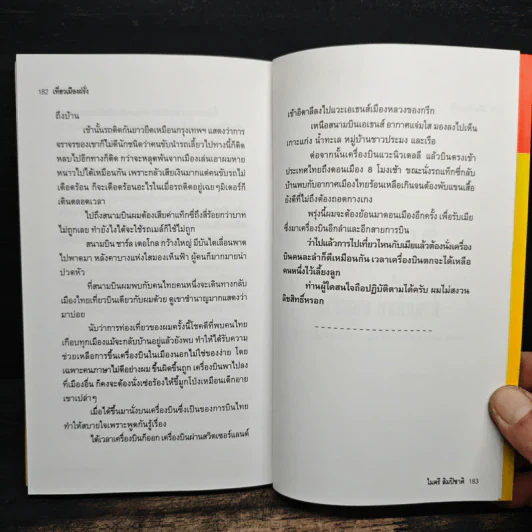 182 เที่ยวเมืองฝรั่ง
ถึงบ้าน
เช้านั้นรถติดกันยาวยืดเหมือนกรุงเทพฯ แสดงว่าการ
จราจรของเขาก็ไม่ดีนักชนิดว่าคนขับนำรถเลี้ยวไปทางนี้ก็ติด
หลบไปอีกทางก็ติด กว่าจะหลุดพ้นจากเมืองเล่นเอาผมหาย
หนาวไปได้เหมือนกัน เพราะกลัวเสียเงินมากแต่คนขับรถไม่
เดือดร้อน ก็จะเดือดร้อนอะไรในเมื่อรถติดอยู่เฉยๆมิเตอร์ก็
เดินตลอดเวลา
ไปถึงสนามบินผมต้องเสียค่าแท็กซี่ถึงสี่ร้อยกว่าบาท
ไม่ถูกเลย ทำยังไงได้จะใช้รถเมล์ก็ใช้ไม่เป็น
สนามบิน ชาร์ล เดอโกล กว้างใหญ่ มีบันไดเลื่อนพาด
ไปพาดมา หลังคาบางแห่งใสมองเห็นฟ้า ผู้คนก็มากมายน่า
ปวดหัว
ที่สนามบินผมพบกับคนไทยคนหนึ่งจะเดินทางกลับ
เมืองไทยเที่ยวบินเดียวกับผมด้วย ดูเขาชำนาญมากแสดงว่า
มาบ่อย
นับว่าการท่องเที่ยวของผมครั้งนี้โชคดีที่พบคนไทย
เกือบทุกเมืองแม้จะกลับบ้านอยู่แล้วยังพบ ทำให้ได้รับความ
ช่วยเหลือการขึ้นเครื่องบินในเมืองนอกไม่ใช่ของง่าย โดย
เฉพาะคนภาษาไม่ดีอย่างผม ขึ้นผิดขึ้นถูก เครื่องบินพาไปลง
ที่เมืองอื่น ก็คงจะต้องนั่งเซ่อร้องไห้ขี้มูกโป่งเหมือนเด็กอาย
เขาเปล่าๆ
เมื่อได้ขึ้นมานั่งบนเครื่องบินซึ่งเป็นของการบินไทย
ทำให้สบายใจเพราะพูดกันรู้เรื่อง
ได้เวลาเครื่องบินก็ออก เครื่องบินผ่านสวิตเซอร์แลนด์
เข้าอิตาลีลงไปแวะเอเธนส์เมืองหลวงของกรีก
เหนือสนามบินเอเธนส์ อากาศแจ่มใส มองลงไปเห็น
เกาะแก่ง น้ำทะเล หมู่บ้านชาวประมง และเรือ
ต่อจากนั้นเครื่องบินแวะนิวเดลลี แล้วบินตรงเข้า
ประเทศไทยถึงดอนเมือง 8 โมงเช้า ขณะนั่งรถแท็กซี่กลับ
บ้านพบกับอากาศเมืองไทยร้อนเหลือเกินจนต้องพับแขนเสื้อ
ยังดีที่ไม่ถึงต้องถอดกางเกง
พรุ่งนี้ผมจะต้องย้อนมาดอนเมืองอีกครั้ง เพื่อรับเมีย
ซึ่งมาเครื่องบินอีกลำและอีกสายการบิน
ว่าไปแล้วการไปเที่ยวไหนกับเมียแล้วต้องนั่งเครื่อง
บินคนละลำก็ดีเหมือนกัน เวลาเครื่องบินตกจะได้เหลือ
คนหนึ่งไว้เลี้ยงลูก
ท่านผู้ใดสนใจถือปฏิบัติตามได้ครับ ผมไม่สงวน
ลิขสิทธิ์หรอก
ไมตรี ลิมปิชาติ 183